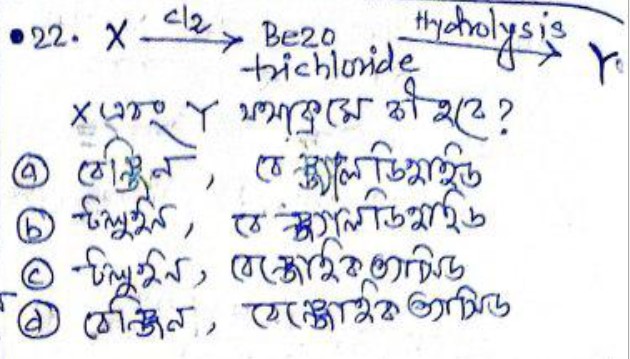 •22. X —Cl2→ Bezo trichloride —Hydrolysis→ Y
X এবং Y যথাক্রমে কী হবে?
ⓐ বেঞ্জিন, বেঞ্জ্যালডিহাইড
ⓑ টলুইন, বেঞ্জ্যালডিহাইড
ⓒ টলুইন, বেঞ্জোইক অ্যাসিড
ⓓ বেঞ্জিন, বেঞ্জোইক অ্যাসিড